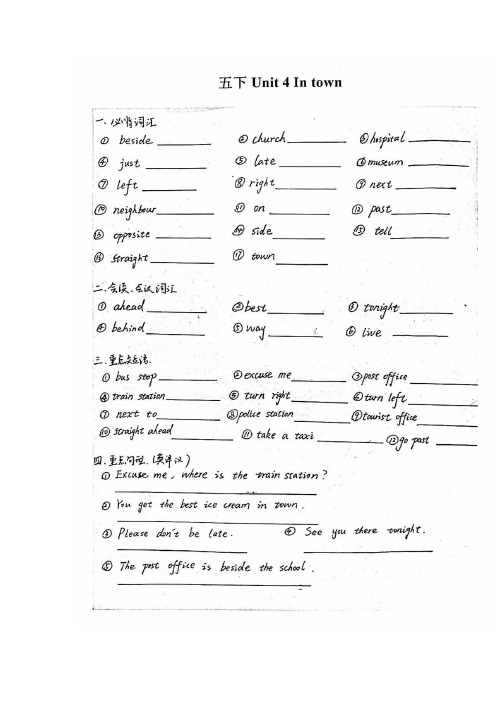 五下 Unit 4 In town
一、必背词汇
① beside ________ ② church ________ ③ hospital ________
④ just ________ ⑤ late ________ ⑥ museum ________
⑦ left ________ ⑧ right ________ ⑨ next ________
⑩ neighbour ________ ⑪ on ________ ⑫ past ________
⑬ opposite ________ ⑭ side ________ ⑮ tell ________
⑯ straight ________ ⑰ town ________
二、会读、会认词汇
① ahead ________ ② best ________ ③ tonight ________
④ behind ________ ⑤ way ________ ⑥ live ________
三、重点短语.
① bus stop ________ ② excuse me ________ ③ post office ________
④ train station ________ ⑤ turn right ________ ⑥ turn left ________
⑦ next to ________ ⑧ police station ________ ⑨ tourist office ________
⑩ straight ahead ________ ⑪ take a taxi ________ ⑫ go past ________
四、重点句型.(英译汉)
① Excuse me, where is the train station?
② You get the best ice cream in town.
③ Please don't be late. ④ See you there tonight.
⑤ The post office is beside the school.